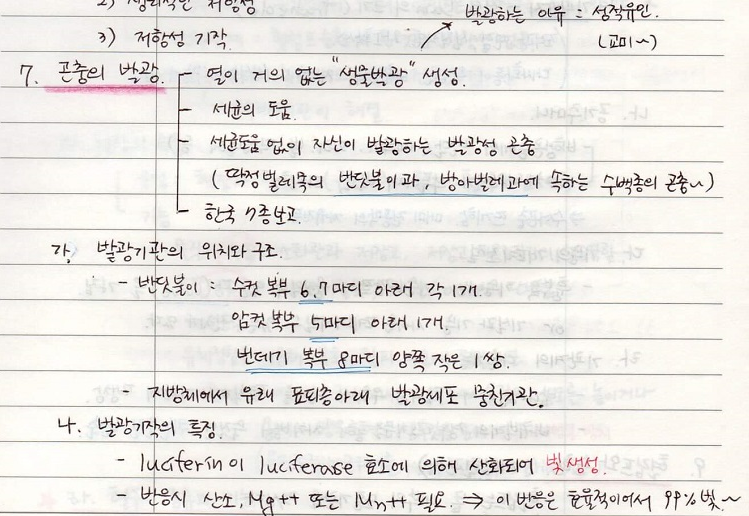 2) 생리적인 저항성
발광하는 이유 = 성적유인.
3) 저항성 기작.
(교미~)
7. 곤충의 발광. - 열이 거의 없는 "생물발광" 생성.
- 세균의 도움.
- 세균도움 없이 자신이 발광하는 발광성 곤충
(딱정벌레목의 반딧불이과, 방아벌레과에 속하는 수백종의 곤충~)
- 한국 7종보고.
가. 발광기관의 위치와 구조.
- 반딧불이 : 수컷 복부 6.7마디 아래 각 1개.
암컷복부 5마디 아래 1개.
번데기 복부 8마디 양쪽 작은 1쌍.
- 지방체에서 유래 표피층아래 발광세포 뭉친기관.
나. 발광기작의 특징.
- luciferin이 luciferase 효소에 의해 산화되어 빛생성.
- 반응시 산소, Mg++ 또는 Mn++ 필요. ⇒ 이 반응은 효율적이어서 99% 빛~